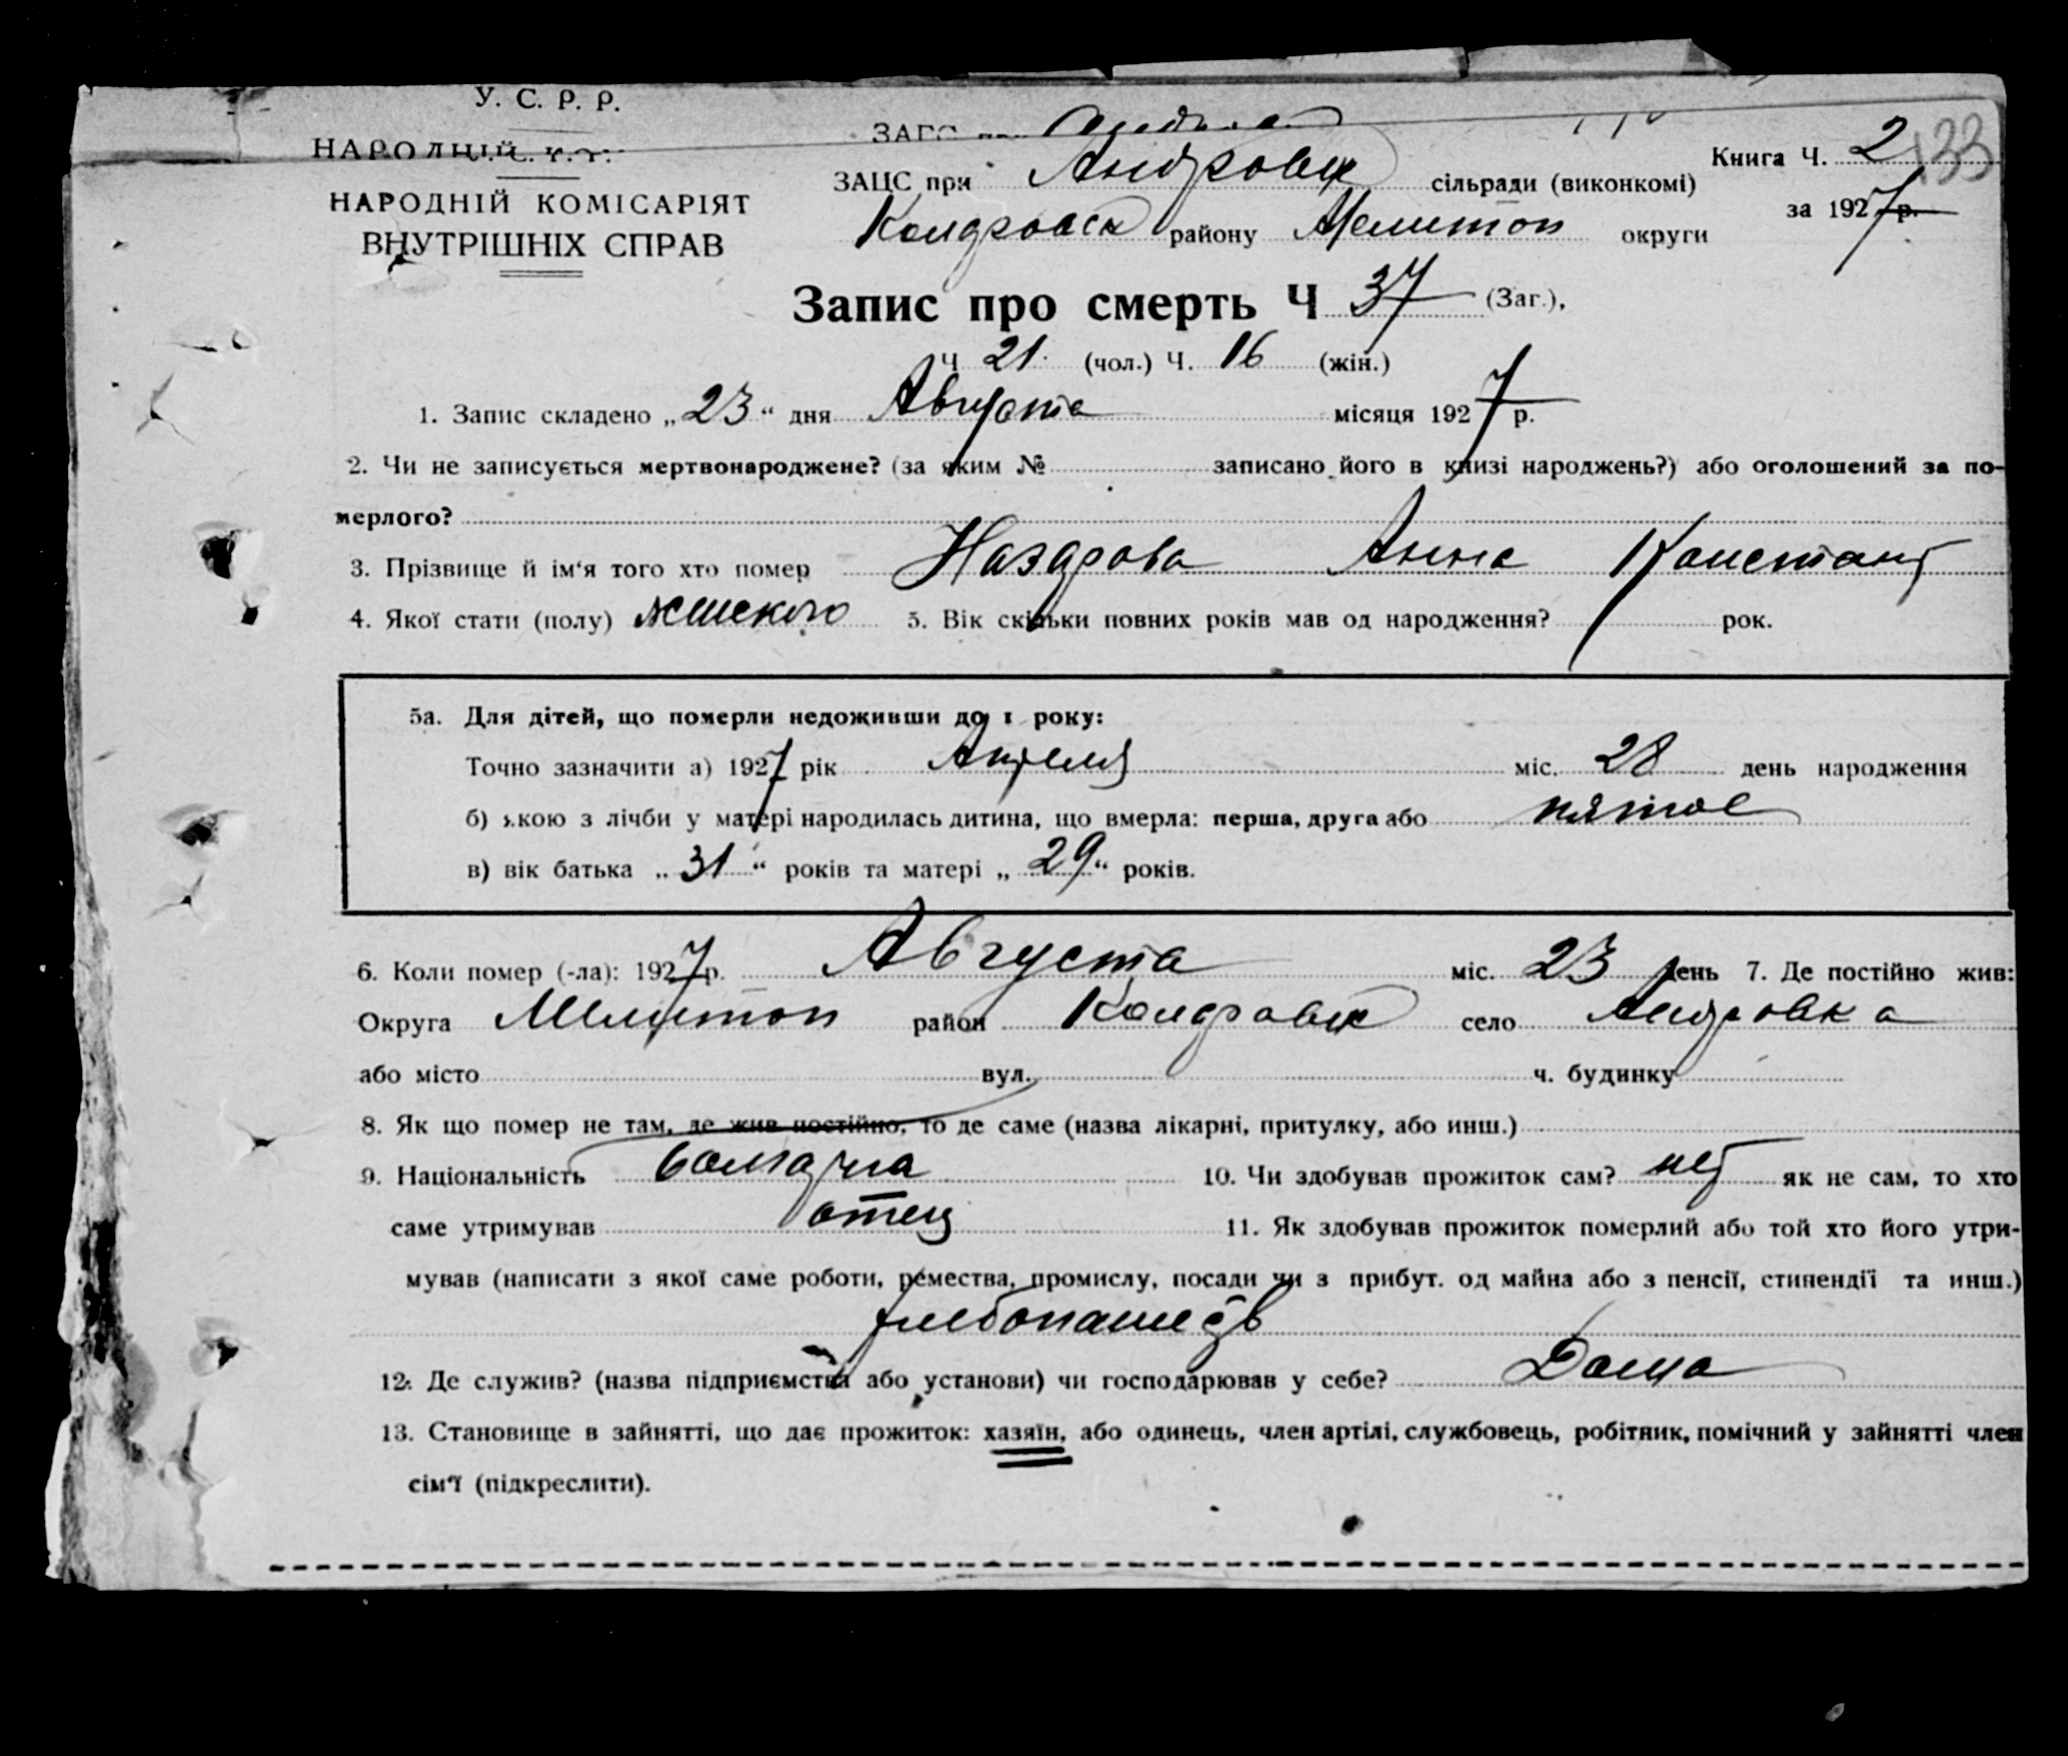 У. С. Р. Р.
НАРОДНІЙ
ЗАГС
НАРОДНІЙ КОМІСАРІЯТ
ВНУТРІШНІХ СПРАВ
Книга Ч. 2 133
ЗАЦС при Андровск сільради (виконкомі)
за 1927 р.
Колдровск району Мелитоп округи
Запис про смерть Ч 37 (Заг.),
Ч 21 (чол.) Ч. 16 (жін.)
1. Запис складено „23“ дня Августа місяця 1927 р.
2. Чи не записується мертвонароджене? (за яким № записано його в книзі народжень?) або оголошений за по-
мерлого?
3. Прізвище й ім‘я того хто помер Назарова Анна Констант
4. Якої стати (полу) женского 5. Вік скільки повних років мав од народження? рок.
5а. Для дітей, що померли недоживши до 1 року:
Точно зазначити а) 1927 рік Апреля міс. 28 день народження
б) якою з лічби у матері народилась дитина, що вмерла: перша, друга або пятое
в) вік батька „31“ років та матері „29“ років.
6. Коли помер (-ла): 1927 р. Августа міс. 23 день 7. Де постійно жив:
Округа Мелитоп район Колдровск село Андровка
або місто вул. ч. будинку
8. Як що помер не там, де жив постійно, то де саме (назва лікарні, притулку, або инш.)
9. Національність болгарка 10. Чи здобував прожиток сам? нет як не сам, то хто
саме утримував отец 11. Як здобував прожиток померлий або той хто його утри-
мував (написати з якої саме роботи, ремества, промислу, посади чи з прибут. од майна або з пенсії, стипендії та инш.)
хлебопашеств
12. Де служив? (назва підприємства або установи) чи господарював у себе? Дома
13. Становище в зайнятті, що дає прожиток: хазяїн, або одинець, член артілі, службовець, робітник, помічний у зайнятті член
сім‘ї (підкреслити).